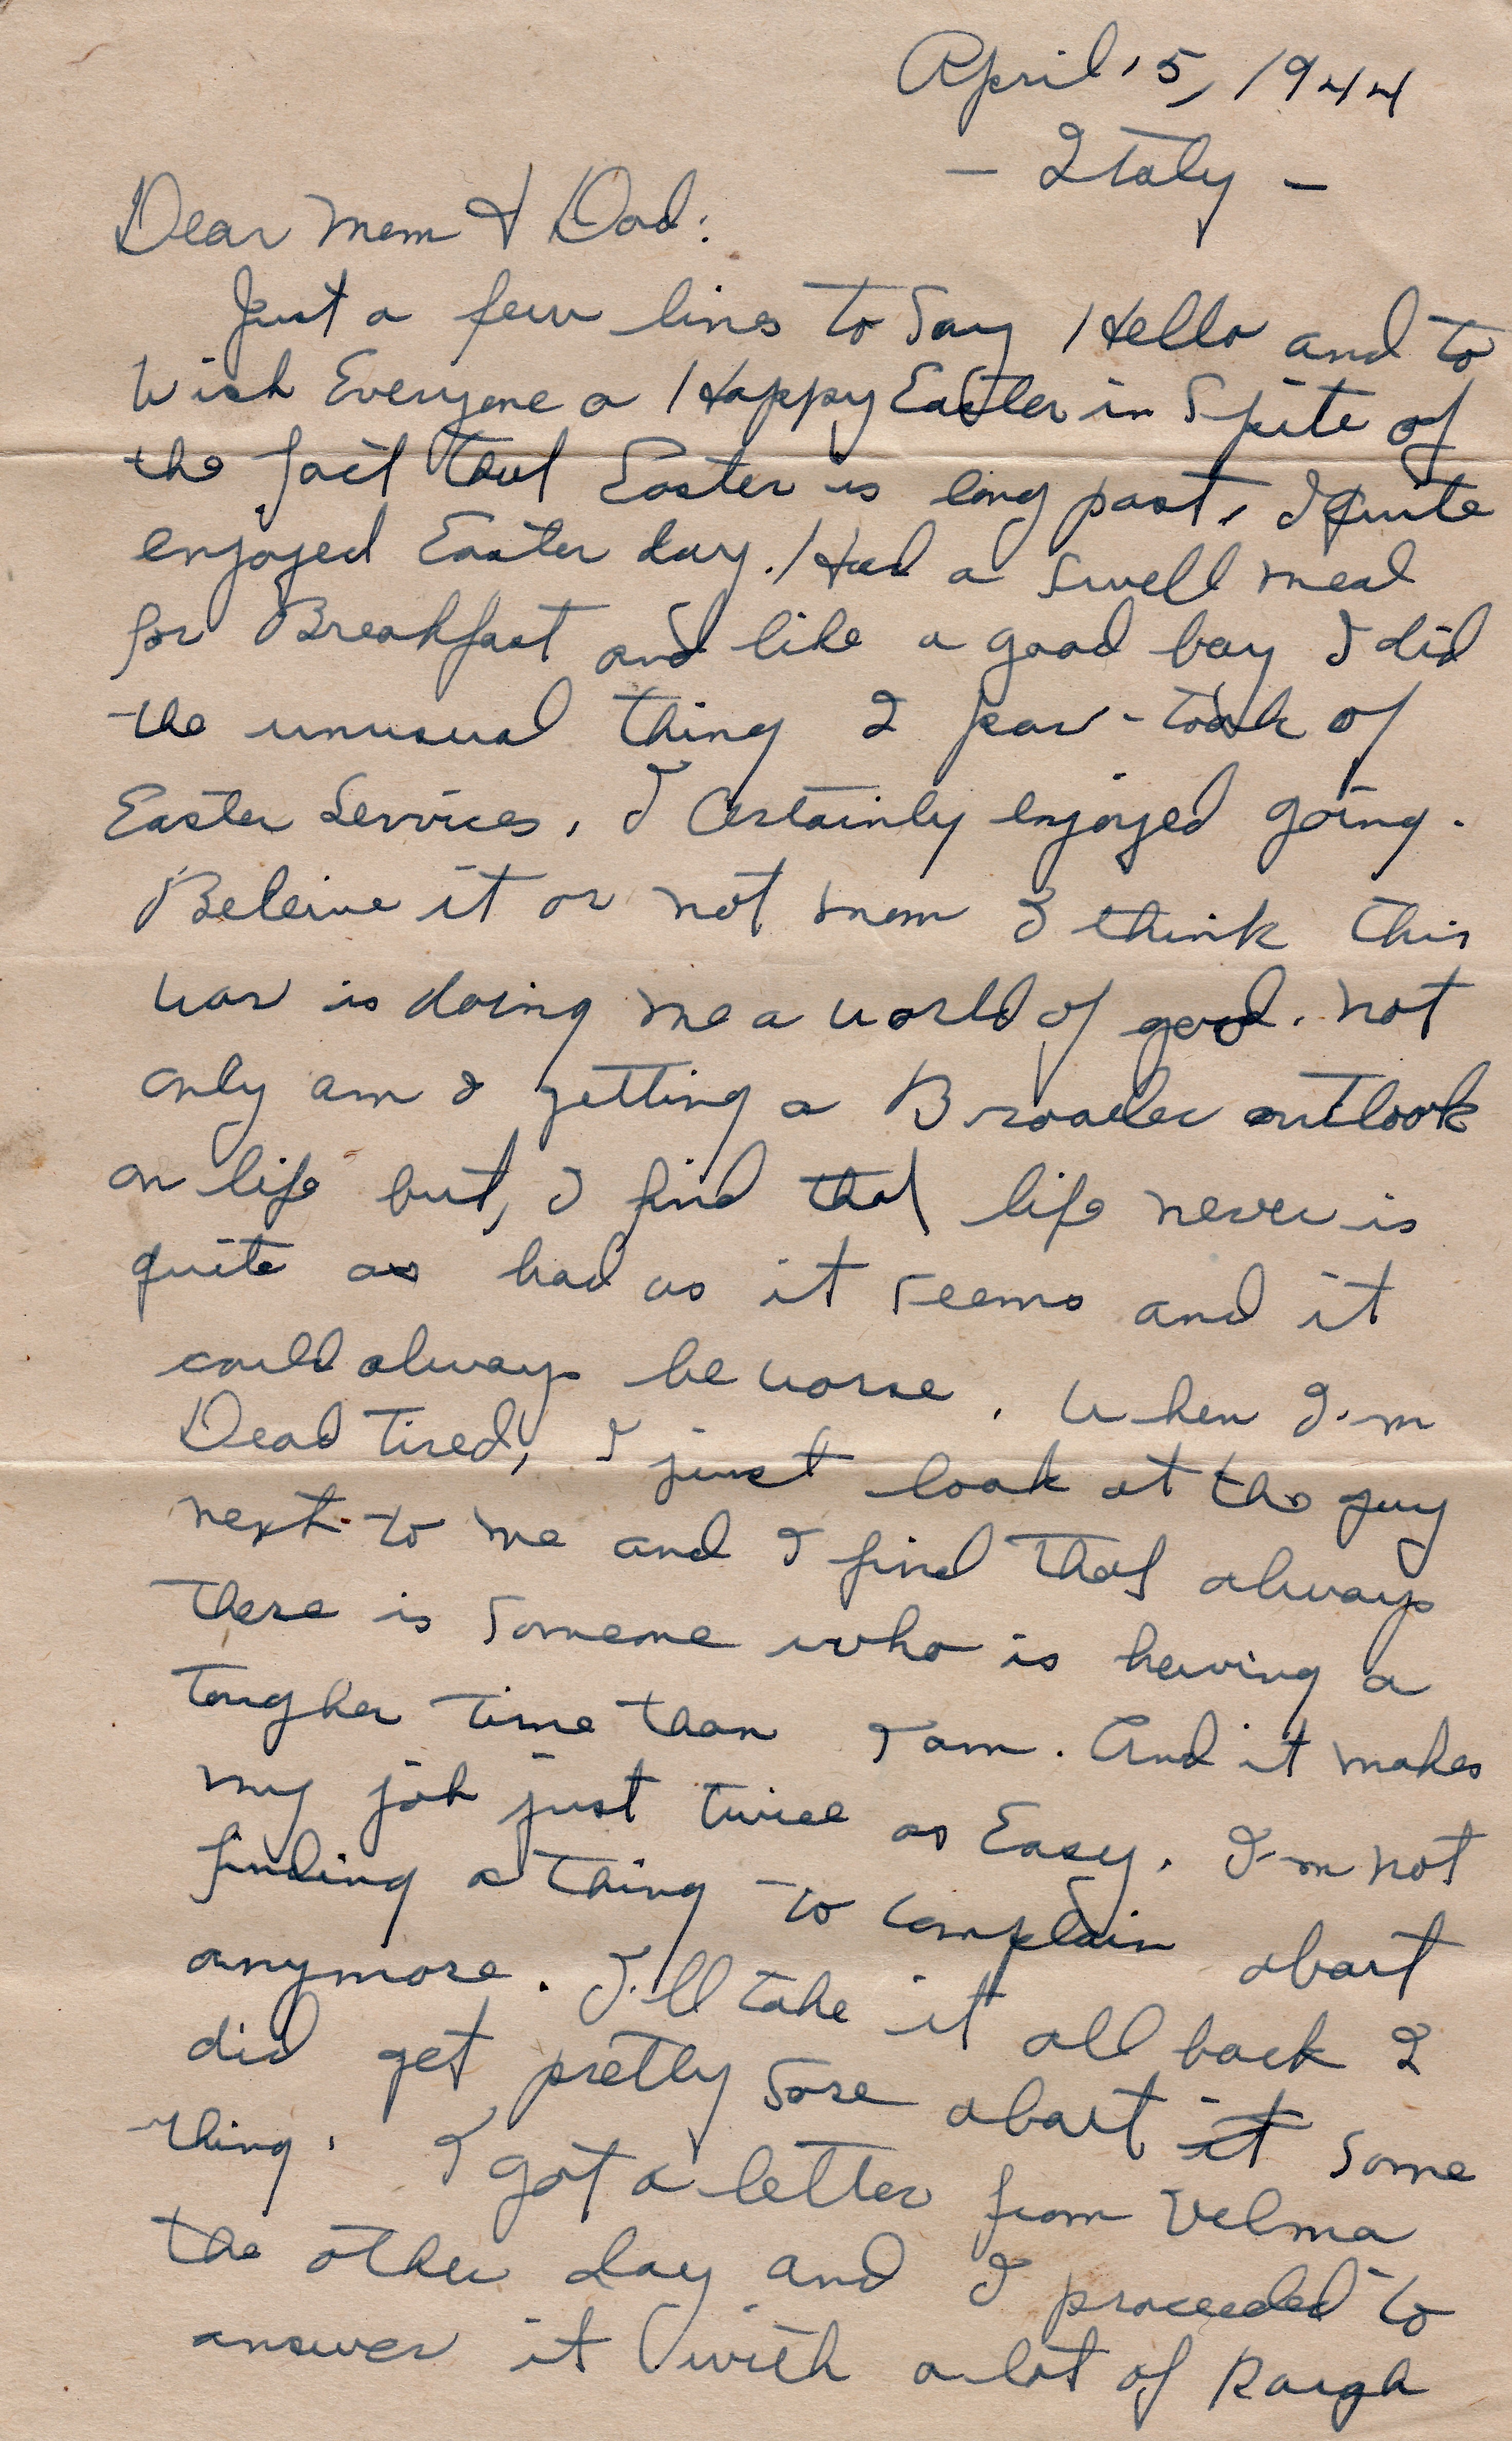 April 15, 1944
- Italy -
Dear Mom & Dad:
Just a few lines to Say Hello and to
Wish Everyone a Happy Easter in Spite of
the fact that Easter is long past, I quite
enjoyed Easter day. Had a Swell meal
for Breakfast and like a good boy I did
the unusual thing I par-took of
Easter Services. I Certainly enjoyed going.
Beleive it or not mom I think this
war is doing me a world of good. not
only am I getting a Broader outlook
on life but, I find that life never is
quite as bad as it seems and it
could always be worse. When I'm
Dead Tired, I just look at the guy
next to me and I find that always
there is Someone who is having a
tougher time than I am. And it makes
my job just twice as Easy. I'm not
finding a thing to complain about
anymore. I'll take it all back I
did get pretty Sore about it Some
thing. I got a letter from Velma
the other day and I proceeded to
answer it with a lot of Rough